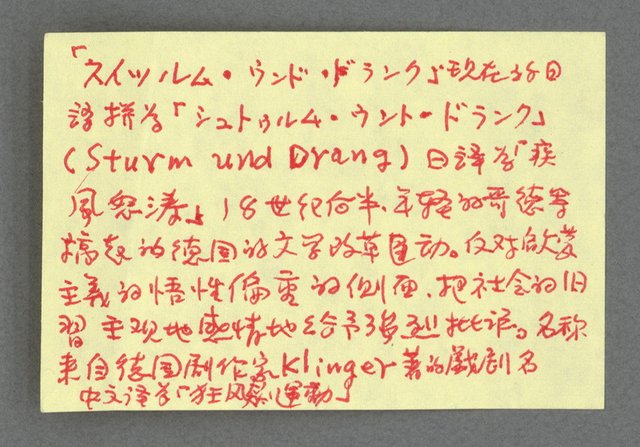 「スイツルム・ウンド・ドランク」现在的日
語拼為「シュトゥルム・ウント・ドランク」
(Sturm und Drang) 日譯為「疾
風怒涛」18世纪后半、年轻的哥德等
搞起的德国的文学改革運动。反对啟蒙
主義的悟性偏重的側面、把社会的旧
習 主观地感情地给予強烈批評。名称
来自德国剧作家Klinger著的戲剧名
中文译为「狂风暴運動」